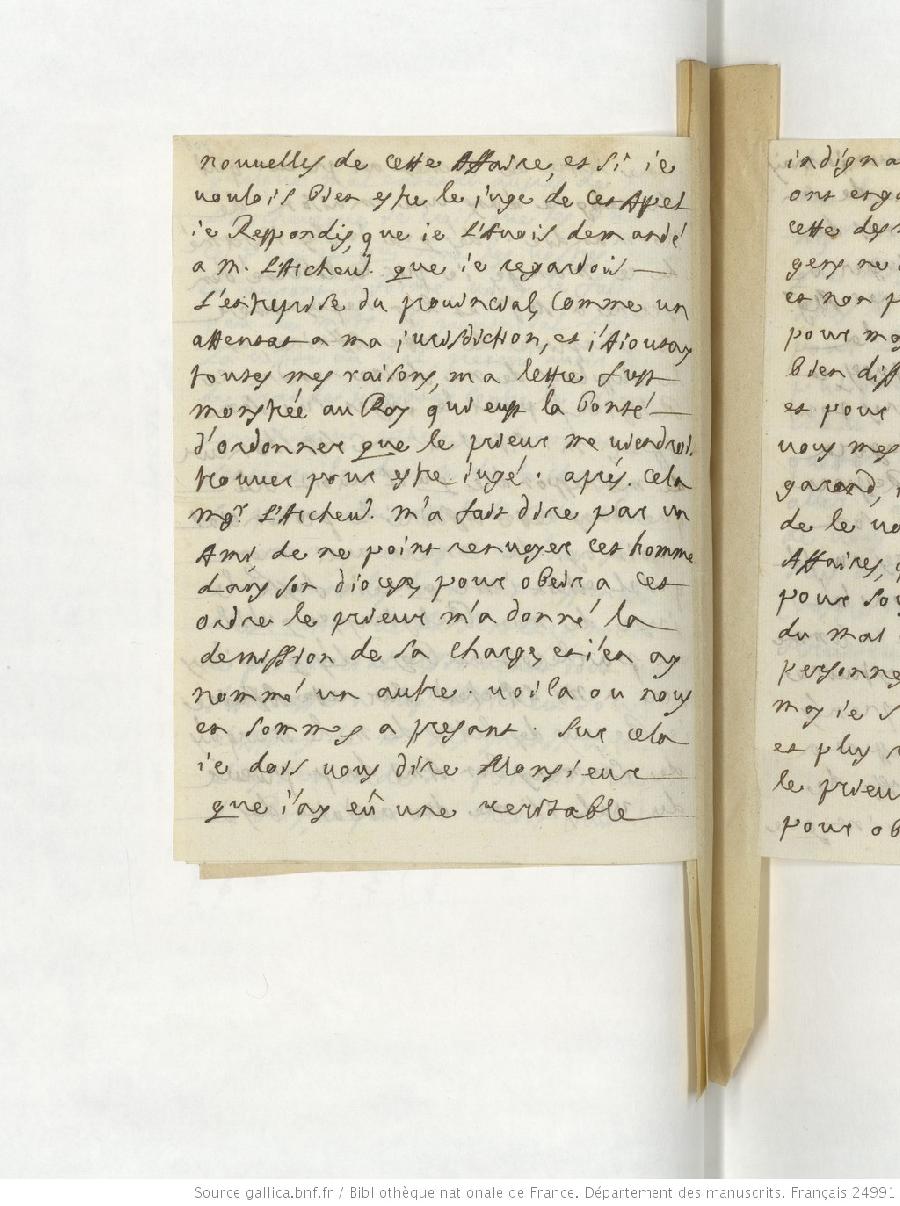 nouuelles de cette Affaire, et si ie
voulois bien estre le iuge de cet Appel
ie Respondis, que ie L'Auois demandé
a m. L'Archeu. que ie regardois
L'entreprise du prouincial, comme un
attentat a ma jurisdiction, et i'Aioutay
toutes mes raisons, ma lettre fust
monstrée au Roy qui eust la bonté
d'ordonner que le prieur me viendroit
trouuer pour estre iugé. aprés cela
mgr. L'Archeu. m'a fait dire par un
Ami de ne point renuoyer cet homme
dans son diocese, pour obeir a cet
ordre le prieur m'a donné la
demission de sa charge, et i'en ay
nommé un autre. voila ou nous
en sommes a present. sur cela
ie dois vous dire Monsieur
que i'ay eû une veritable
indigna
ont
cette des
gens ne
et non p
pour moy
bien diff
et pour
vous mes
garand,
de le vo
Affaires,
pour
du mal
personnes
moy ie s
et plus
le prieur
pour ob
Source gallica.bnf.fr / Bibliothèque nationale de France. Département des manuscrits. Français 24991